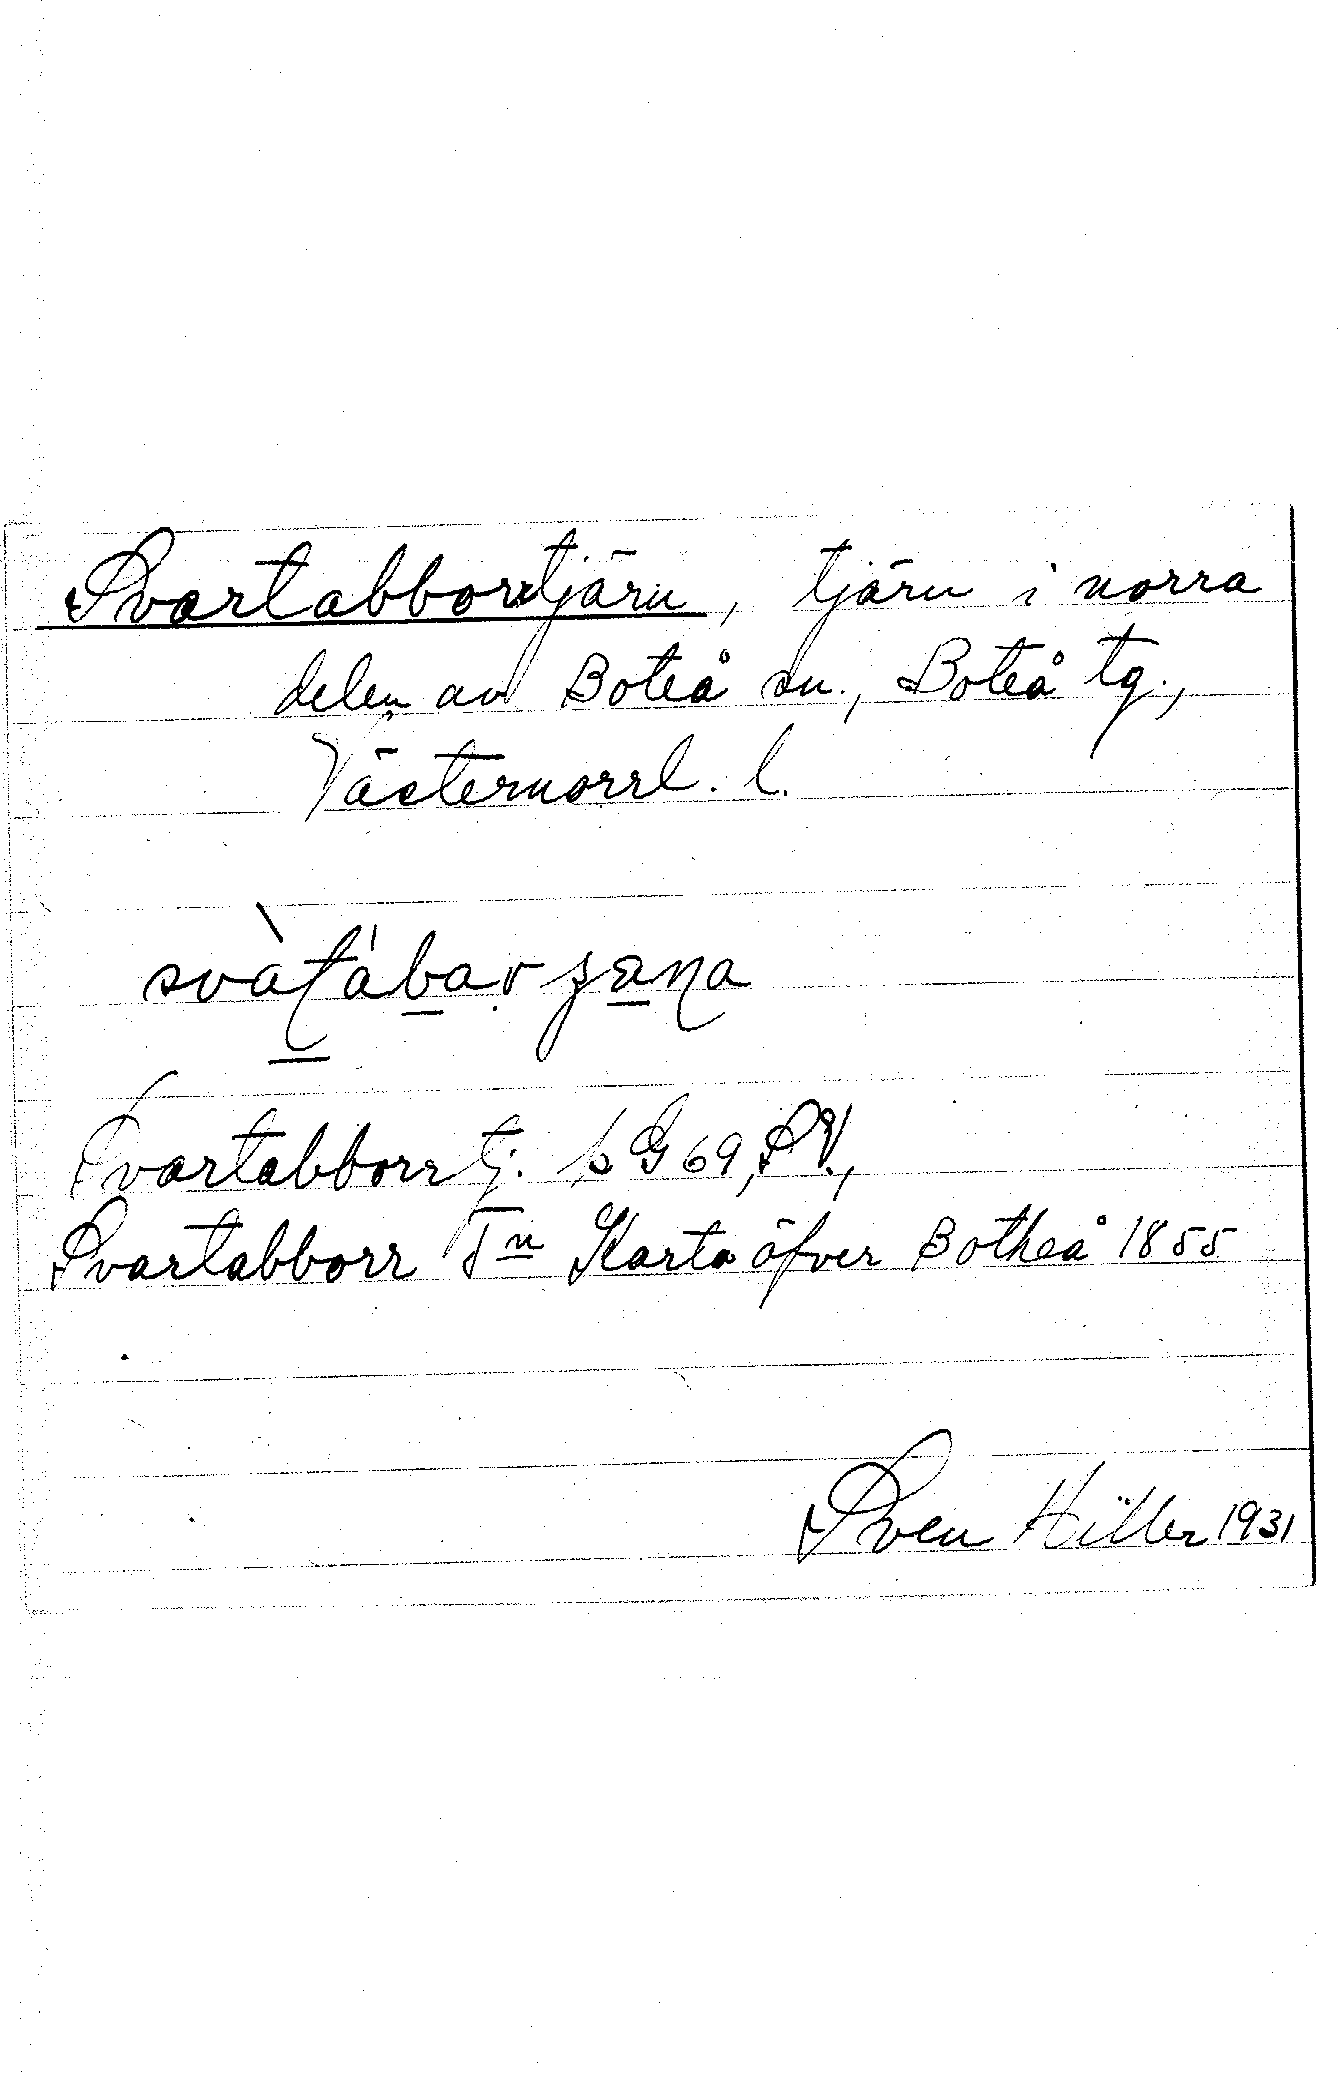 Svartabborrtjärn, tjärn i norra
delen av Boteå sn., Boteå tg.,
Västernorrl. l.
Svartabborrtj. bG69, SV.,
Svartabborr Tn Karta öfver Botheå 1855
Sven Hiller 1931